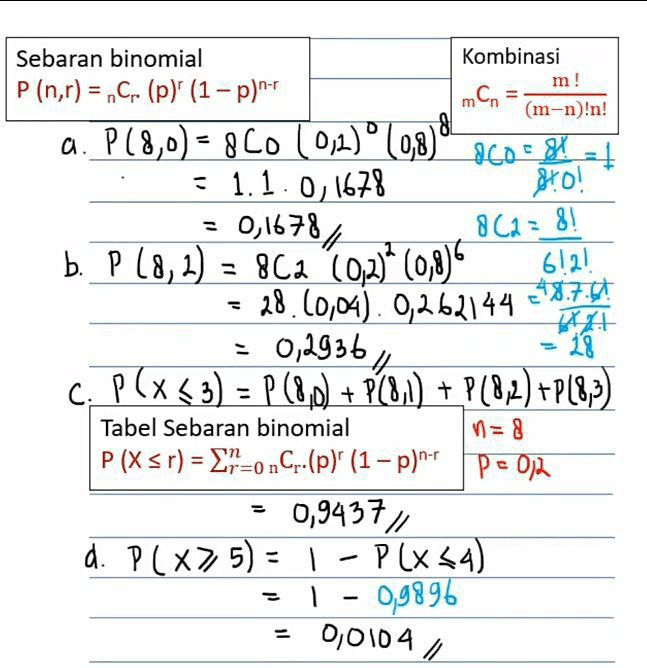 Sebaran binomial
P (n,r) = ₙCᵣ. (p)ʳ (1 – p)ⁿ⁻ʳ
Kombinasi
ₘCₙ = m ! / (m−n)!n!
a. P(8,0) = 8C0 (0,2)⁰ (0,8)⁸
= 1.1. 0,1678
= 0,1678 //
8C0 = 8! / 8!0! = 1
b. P (8,2) = 8C2 (0,2)² (0,8)⁶
= 28. (0,04). 0,262144
= 0,2936 //
8C2 = 8!
6!2!
= ⁴8.7.6! / 6!2.1
= 28
c. P(X ≤ 3) = P(8,0) + P(8,1) + P(8,2) + P(8,3)
Tabel Sebaran binomial
P (X ≤ r) = ∑ⁿᵣ₌₀ ₙCᵣ.(p)ʳ (1 – p)ⁿ⁻ʳ
n = 8
P = 0,2
= 0,9437 //
d. P( X ≥ 5) = 1 – P(X ≤ 4)
= 1 – 0,9896
= 0,0104 //